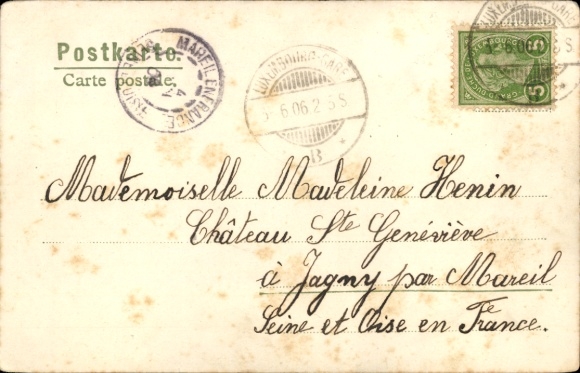 Postkarte.
Carte postale.
MAREIL EN FRANCE
LUXEMBOURG-GARE
6.06.2 3 S
B
5
Mademoiselle Madeleine Henin
Château Ste Geneviève
à Jagny par Mareil
Seine et Oise en France.